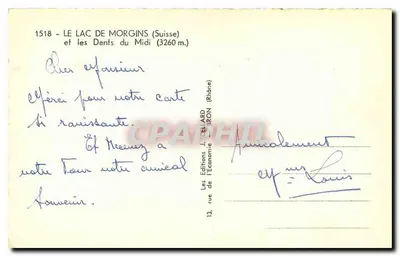 1518 - LE LAC DE MORGINS (Suisse)
et les Dents du Midi (3260 m.)
Cher Monsieur
Merci pour votre carte
si ravissante.
Et Recevez a
votre Tour notre amical
Souvenir.
CPAPHIL
Les Editions J.
13, rue de l'Economie - RON (Rhône)
Amicalement
Louis